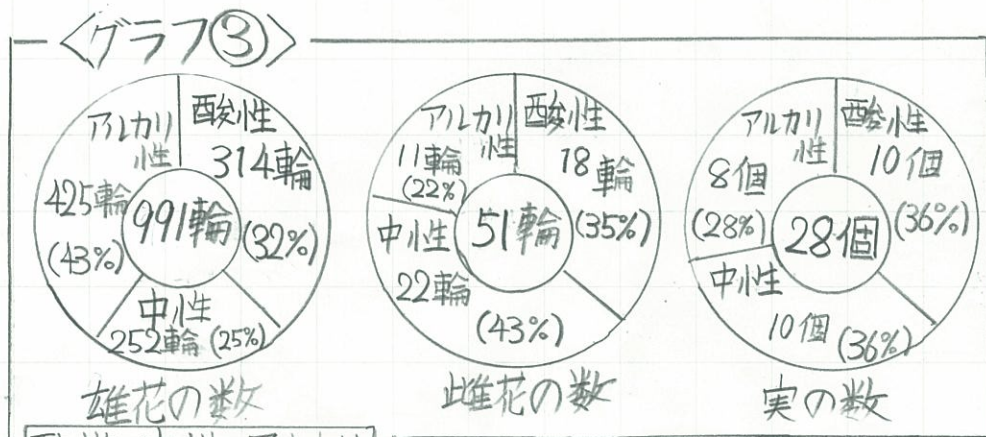 〈グラフ③〉
アルカリ性
425輪
(43%)
酸性
314輪
(32%)
991輪
中性
252輪(25%)
雄花の数
アルカリ性
11輪
(22%)
酸性
18輪
(35%)
51輪
中性
22輪
(43%)
雌花の数
アルカリ性
8個
(28%)
酸性
10個
(36%)
28個
中性
10個(36%)
実の数